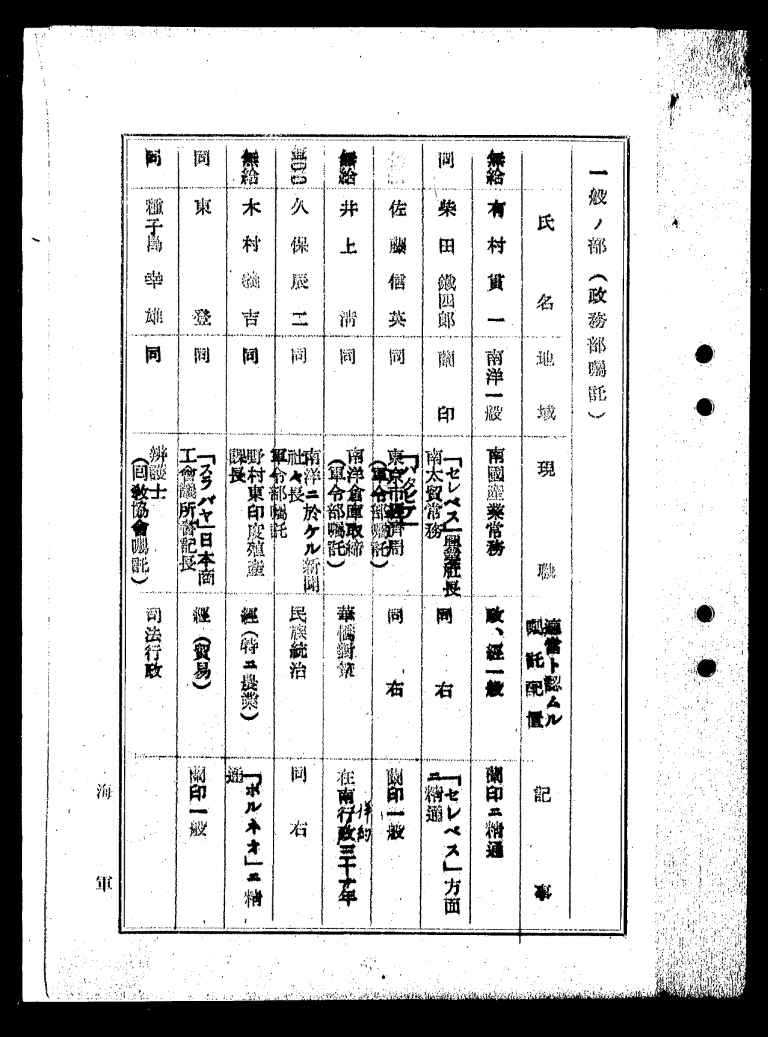 一般ノ部（政務部囑託）
氏名
地域
現職
適當ト認ムル
囑託配置
記事
無給
有村貫一
南洋一般
南國產業常務
政、經一般
蘭印ニ精通
同
柴田鐵四郎
蘭印
「セレベス」興業社長
南太貿常務
同右
「セレベス」方面
ニ精通
佐藤信英
同
「バタビア」
東京市經濟局
（軍令部囑託）
同右
蘭印一般
無給
井上清
同
南洋倉庫取締
（軍令部囑託）
華僑對策
在南行政三十年
久保辰二
同
南洋ニ於ケル新聞
社々長
軍令部囑託
民族統治
同右
無給
木村吉
同
野村東印度殖產
課長
經（特ニ農業）
「ボルネオ」ニ精
通
同
東登
同
「スラバヤ」日本商
工會議所書記長
經（貿易）
蘭印一般
同
種子島幸雄
同
辨護士
（回敎協會囑託）
司法行政
海軍